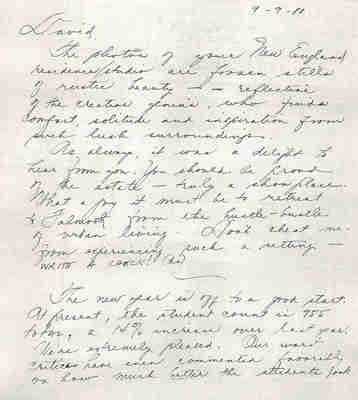 9-9-80
David,
The photos of your New England
residence/studio are frozen stills
of rustic beauty -- reflective
of the creative genius, who finds
comfort, solitude and inspiration from
such lush surroundings.
As always, it was a delight to
hear from you. You should be proud
of the estate - truly a showplace.
What a joy it must be to retreat
to Falmouth from the hustle-bustle
of urban living. Don't cheat me
from experiencing such a setting -
WRITE A BOOK!
The new year is off to a good start.
At present, the student count is 755
today, a 14% increase over last year.
We're extremely pleased. Our worst
critics have even commented favorably
on how much better the students look